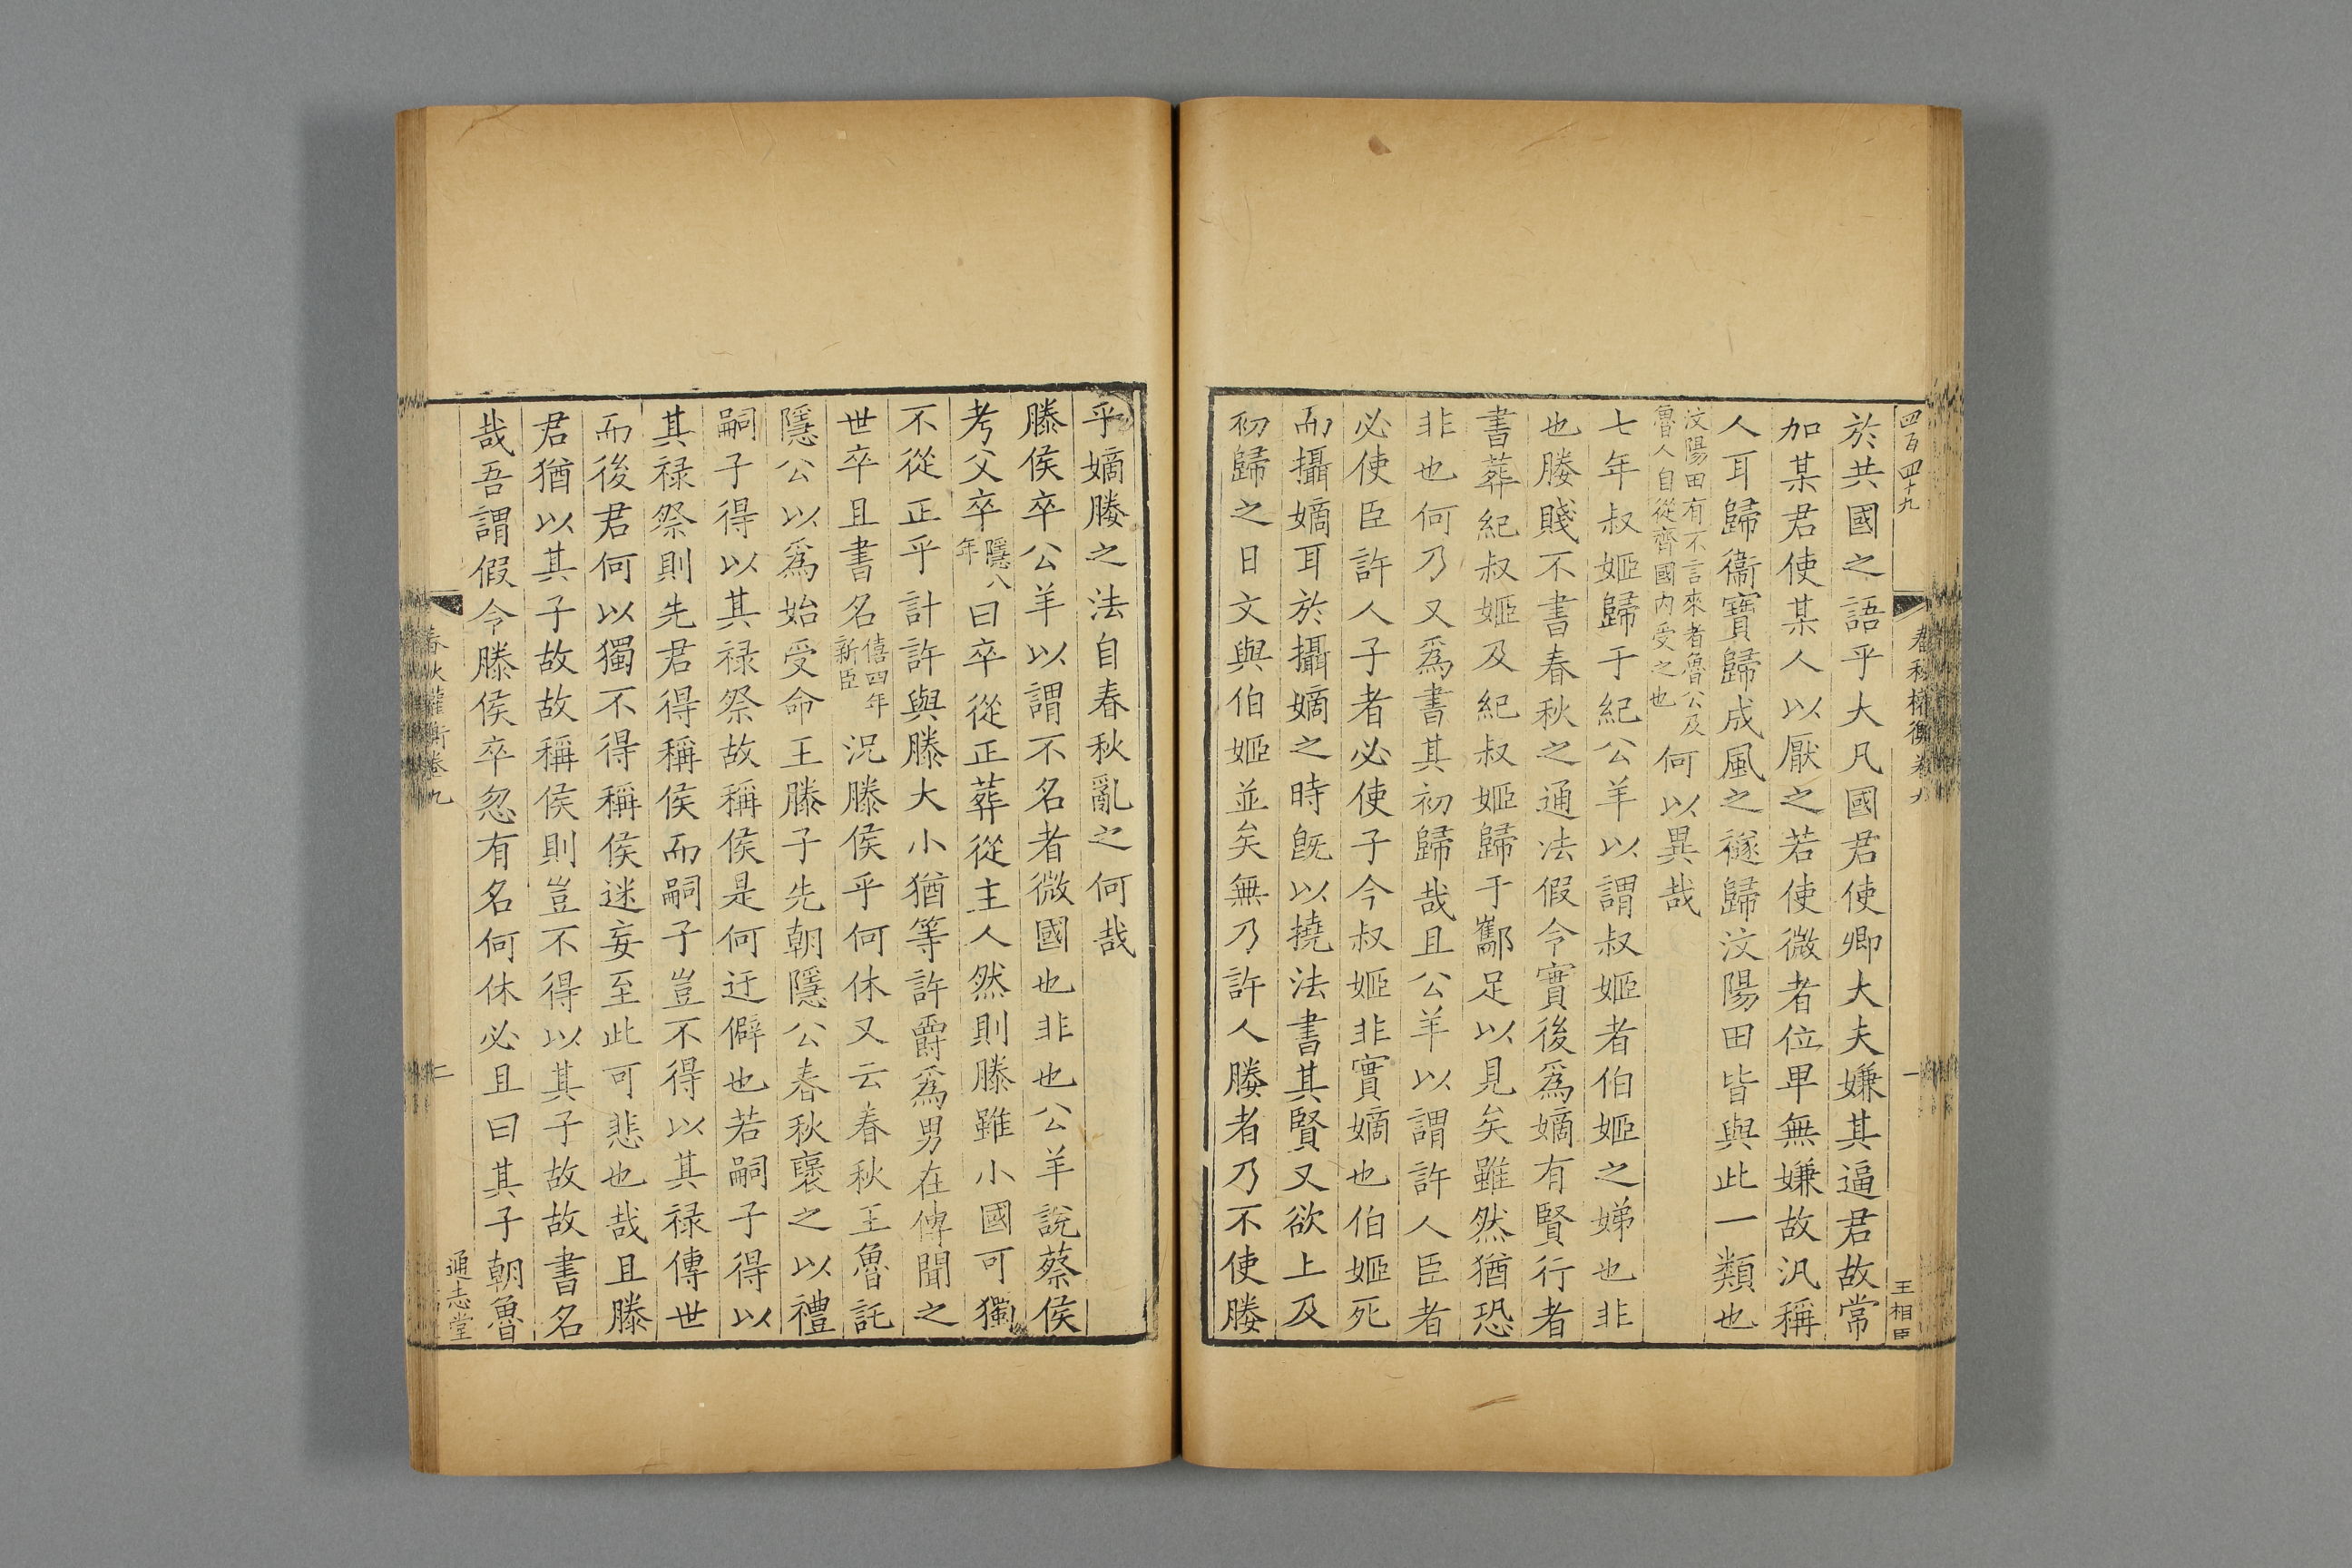 四百四十九
春秋權衡卷九
一
王相臣
於共國之語乎大凡國君使卿大夫嫌其逼君故常
加某君使某人以厭之若使微者位卑無嫌故汎稱
人耳歸衞寶歸成風之襚歸汶陽田皆與此一類也
汶陽田有不言來者魯公及
魯人自從齊國內受之也
何以異哉
七年叔姬歸于紀公羊以謂叔姬者伯姬之娣也非
也媵賤不書春秋之通法假令實後爲嫡有賢行者
書葬紀叔姬及紀叔姬歸于酅足以見矣雖然猶恐
非也何乃又爲書其初歸哉且公羊以謂許人臣者
必使臣許人子者必使子今叔姬非實嫡也伯姬死
而攝嫡耳於攝嫡之時旣以撓法書其賢又欲上及
初歸之日文與伯姬並矣無乃許人媵者乃不使媵
乎嫡媵之法自春秋亂之何哉
滕侯卒公羊以謂不名者微國也非也公羊說蔡侯
考父卒隱八年曰卒從正葬從主人然則滕雖小國可獨
不從正乎計許與滕大小猶等許爵爲男在傳聞之
世卒且書名僖四年新臣況滕侯乎何休又云春秋王魯託
隱公以爲始受命王滕子先朝隱公春秋襃之以禮
嗣子得以其禄祭故稱侯是何迂僻也若嗣子得以
其禄祭則先君得稱侯而嗣子豈不得以其禄傳世
而後君何以獨不得稱侯迷妄至此可悲也哉且滕
君猶以其子故故稱侯則豈不得以其子故故書名
哉吾謂假令滕侯卒忽有名何休必且曰其子朝魯
春秋權衡卷九
二
通志堂